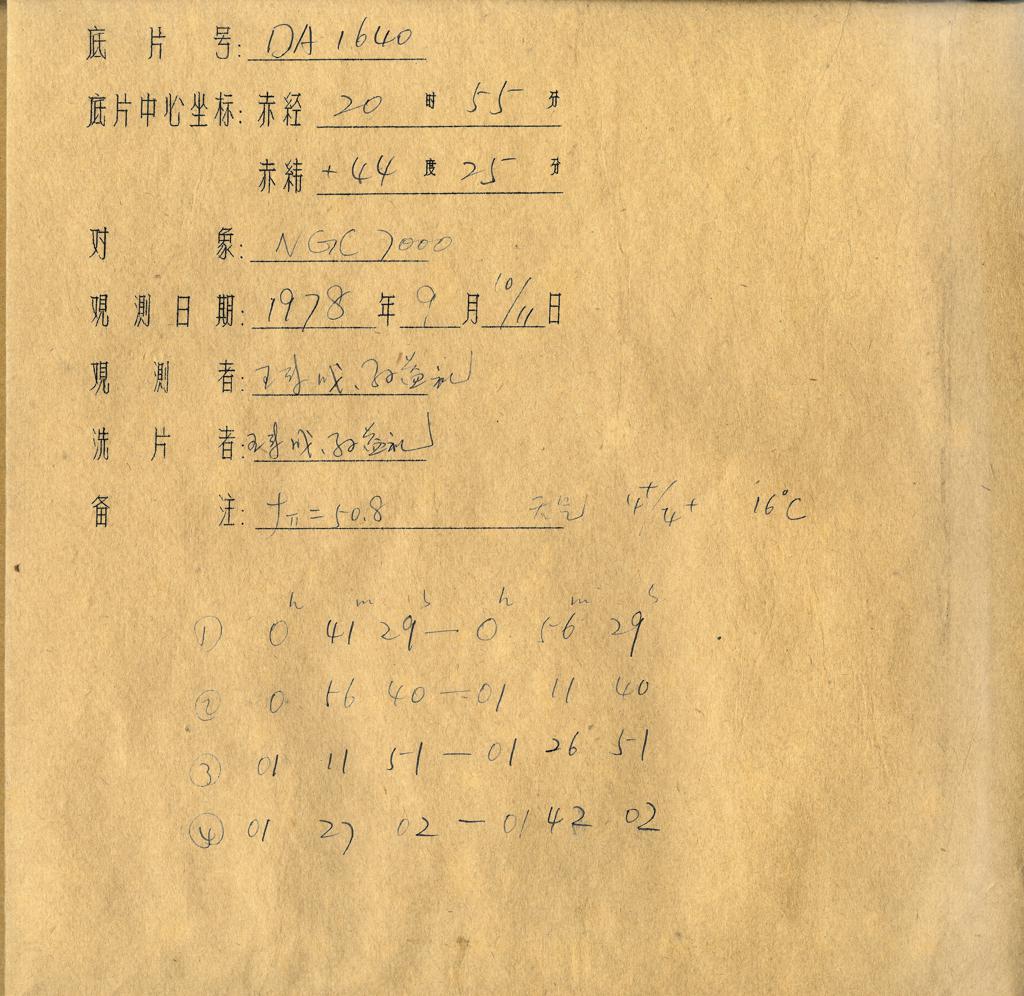 底片号: DA 1640
底片中心坐标: 赤经 20 时 55 分
赤纬 +44 度 25 分
对象: NGC 7000
观测日期: 1978 年 9 月 10/11 日
观测者: 孙益礼
洗片者: 孙益礼
备注: fπ = 50.8 4+/4+ 16°C
① 0h 41m 29s — 0h 56m 29s
② 0 56 40 — 01 11 40
③ 01 11 51 — 01 26 51
④ 01 27 02 — 01 42 02